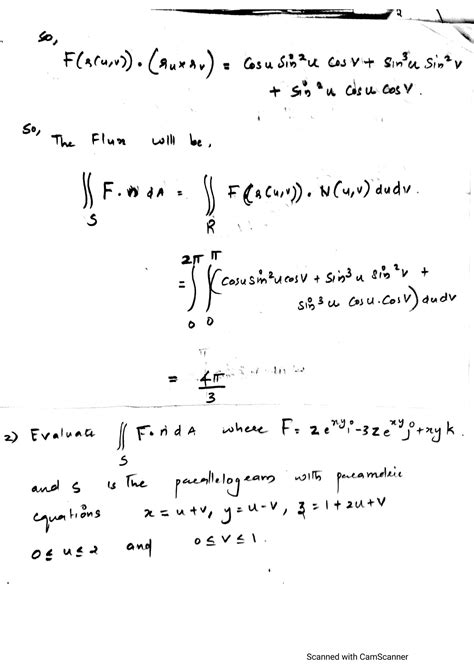 2
So,
F(r(u,v)) · (ru×rv) = Cosu Sin²u Cos V + Sin³u Sin²v
+ Sin²u Cosu Cos V.
So, The Flux will be,
∬ F·n dA = ∬ F(r(u,v)) · N(u,v) dudv.
S R
2π π
= ∫∫ (Cosu Sin²u cos V + Sin³u Sin²v +
Sin³u Cosu. Cos V) dudv
0 0
= 4π/3
2) Evaluate ∬ F·n dA where F = z e^xy i - 3z e^xy j + xy k.
S
and S is The parallelogram with parametric
equations x = u+v, y = u-v, z = 1+2u+v
0 ≤ u ≤ 2 and 0 ≤ v ≤ 1.
Scanned with CamScanner